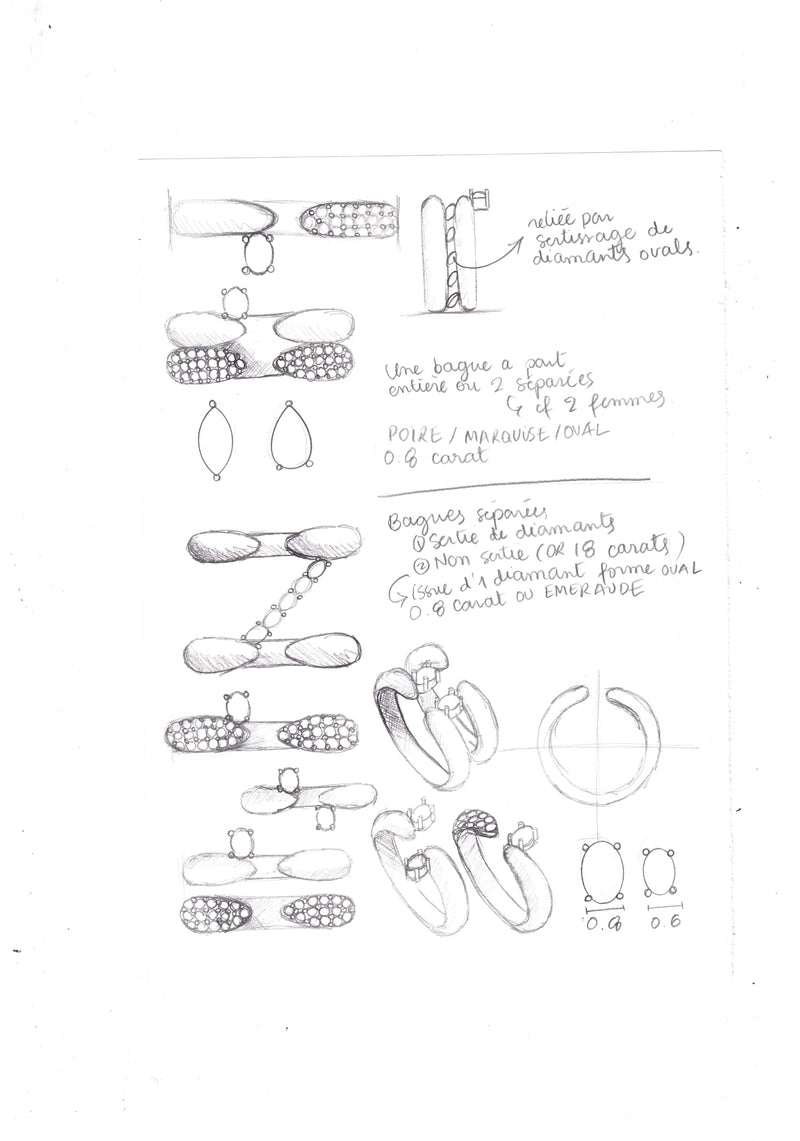 reliée par
sertissage de
diamants ovals.
Une bague a part
entière ou 2 séparées
↳ cf 2 femmes.
POIRE / MARQUISE / OVAL
0.8 carat
Bagues séparées
① Sertie de diamants
② Non sertie (OR 18 carats)
↳ issue d'1 diamant forme OVAL
0.8 carat OU EMERAUDE
0.8
0.6